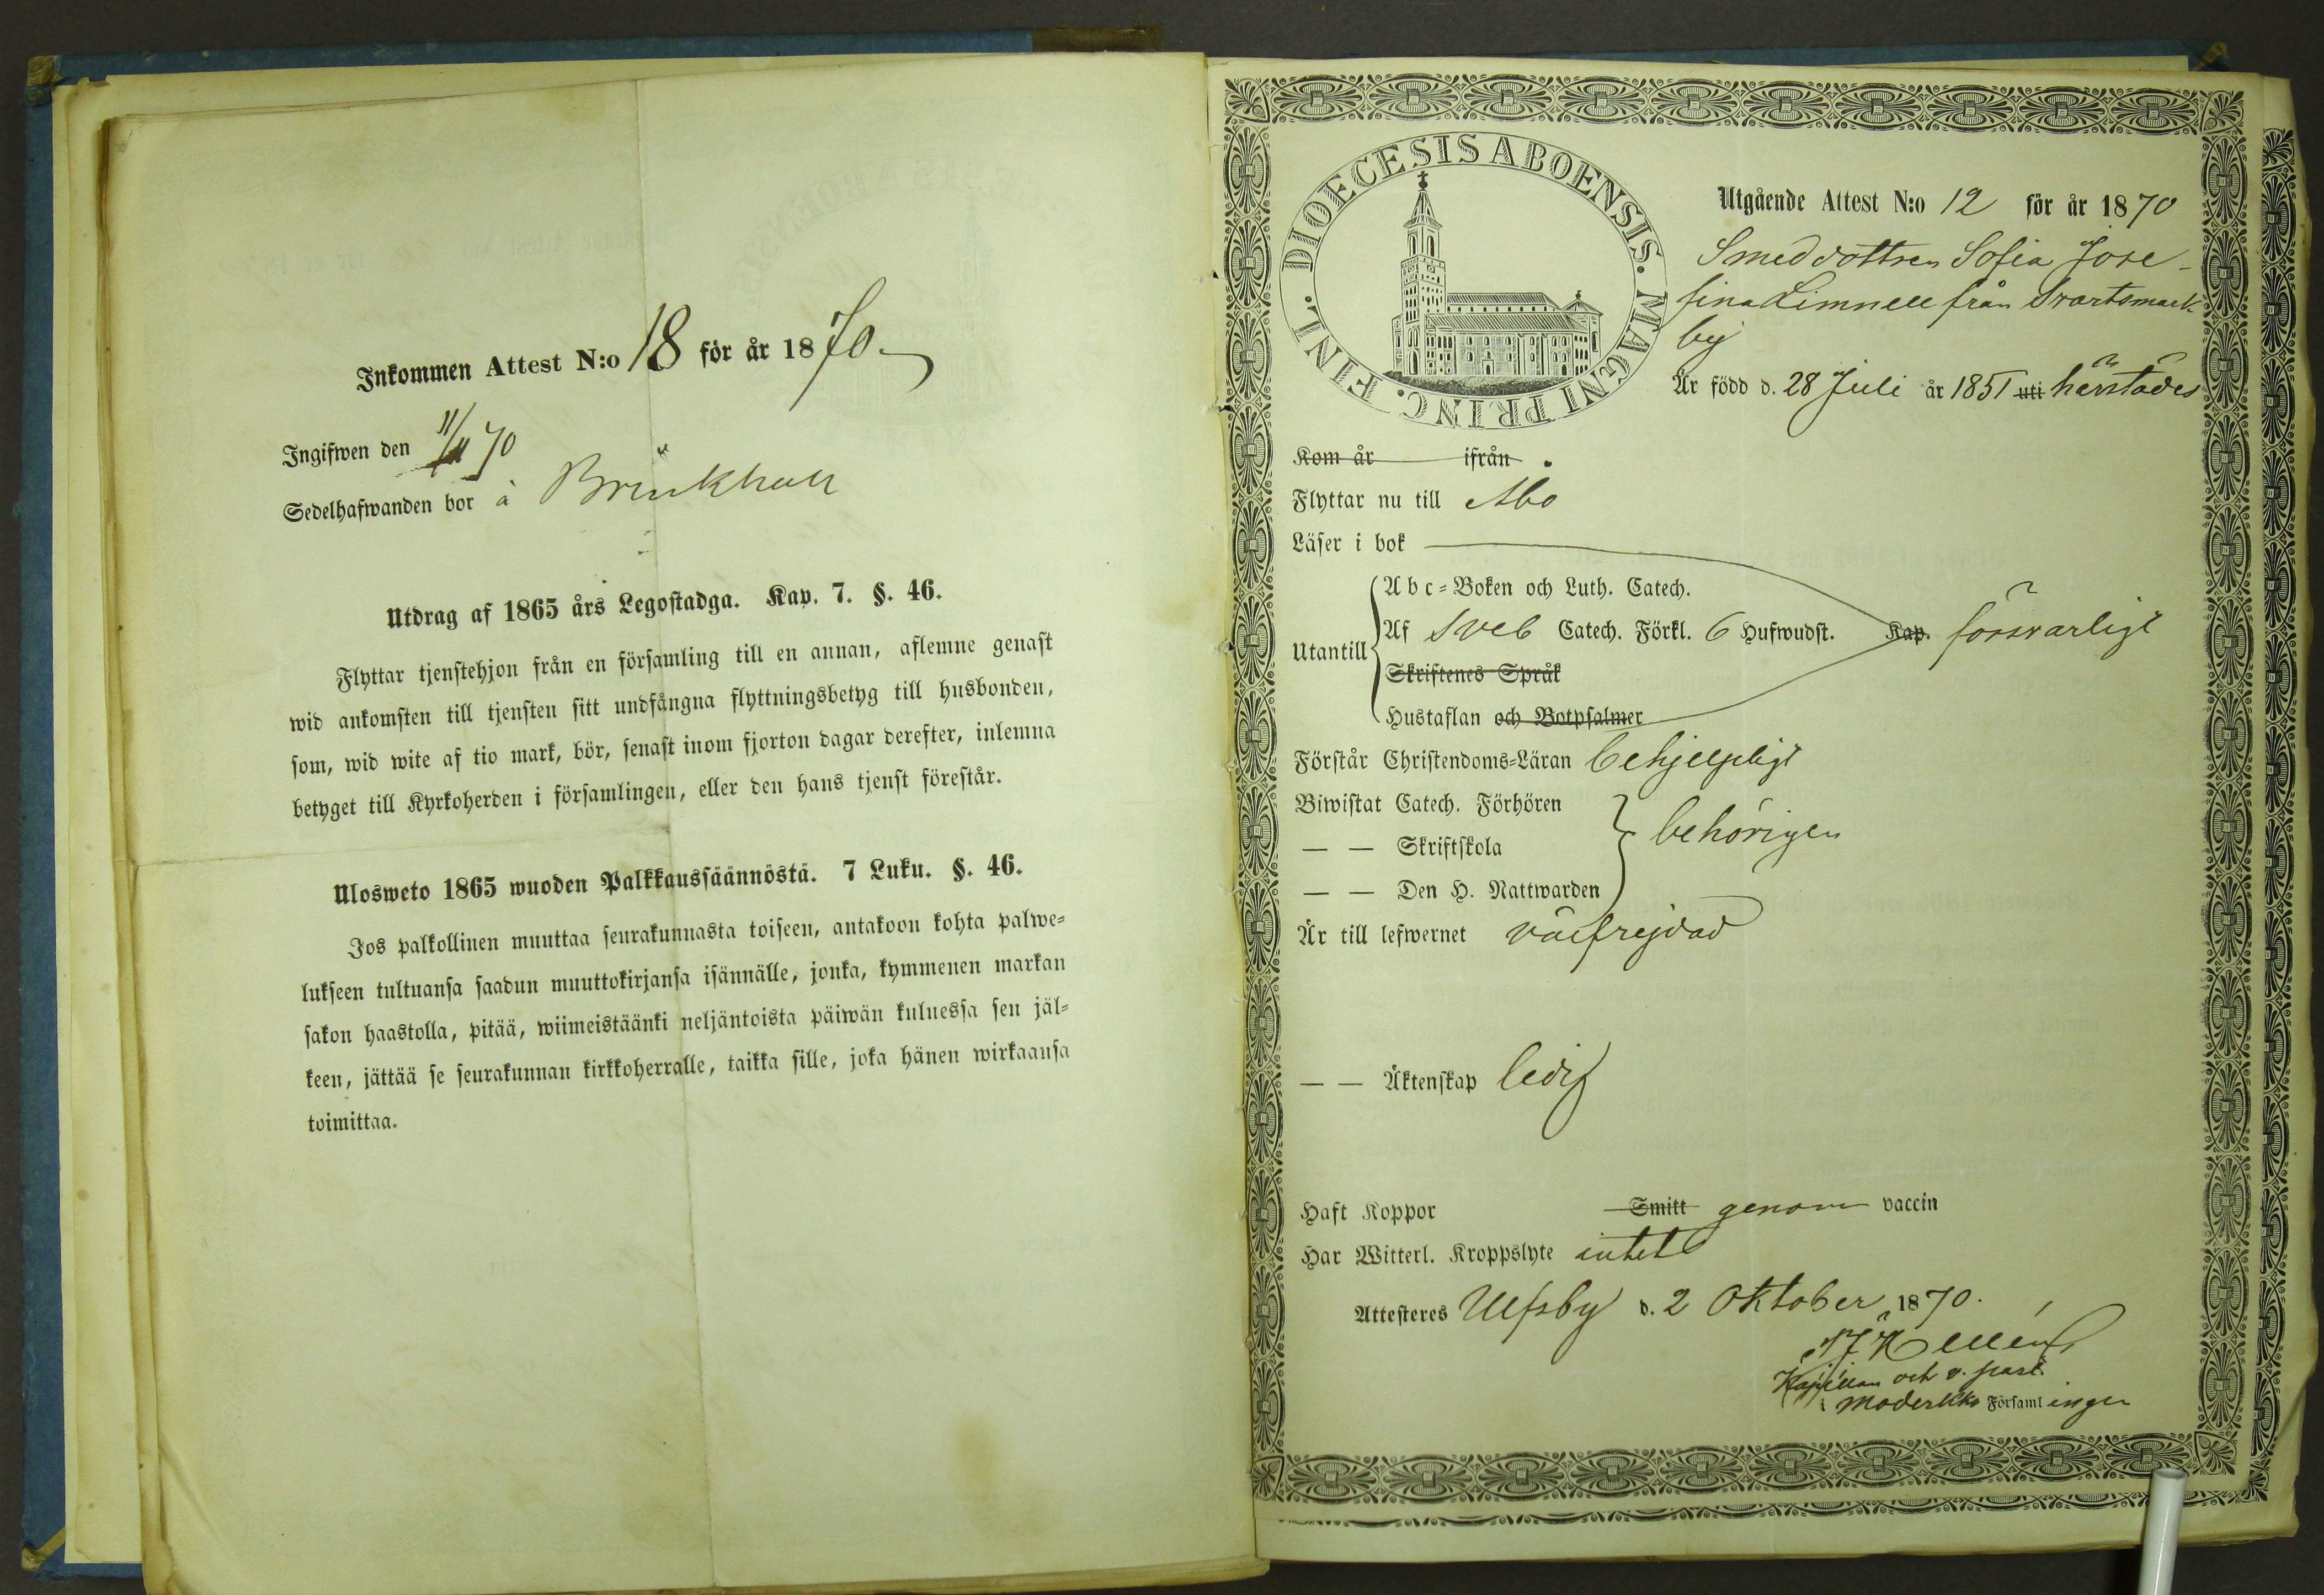 Inkommen Attest N:o 18 för år 1870
Ingifwen den 11/11 70
Sedelhafwanden bor å Brinkhall
Utdrag af 1865 års Legostadga. Kap. 7. §. 46.
Flyttar tjenstehjon från en församling till en annan, aflemne genast
wid ankomsten till tjensten sitt undfångna flyttningsbetyg till husbonden,
som, wid wite af tio mark, bör, senast inom fjorton dagar derefter, inlemna
betyget till Kyrkoherden i församlingen, eller den hans tjenst förestår.
Ulosweto 1865 wuoden Palkkaussäännöstä. 7 Luku. §. 46.
Jos palkollinen muuttaa seurakunnasta toiseen, antakoon kohta palwe-
lukseen tultuansa saadun muuttokirjansa isännälle, jonka, kymmenen markan
sakon haastolla, pitää, wiimeistäänki neljäntoista päiwän kuluessa sen jäl-
keen, jättää se seurakunnan kirkkoherralle, taikka sille, joka hänen wirkaansa
toimittaa.
FINL. DIOECESIS ABOENSIS. MAGNI PRINC.
Utgående Attest N:o 12 för år 1870
Smeddottren Sofia Jose-
fina Limnell från Svartsmark
by
Är född d. 28 Juli år 1851 uti härstädes
Kom år ifrån
Flyttar nu till Åbo
Läser i bok
Abc-Boken och Luth. Catech.
Utantill Af Sveb Catech. Förkl. 6 Hufwudst. Kap. försvarligt
Skriftenes Språk
Hustaflan och Botpsalmer
Förstår Christendoms-Läran behjelpligt
Biwistat Catech. Förhören
— — Skriftskola behörigen
— — Den H. Nattwarden
Är till lefwernet välfrejdad
— — Äktenskap ledig
Haft Koppor Smitt genom vaccin
Har Witterl. Kroppslyte intet
Attesteres Ulfsby d. 2 Oktober 1870.
Kapellan och v. past.
i Moderkko Församlingen